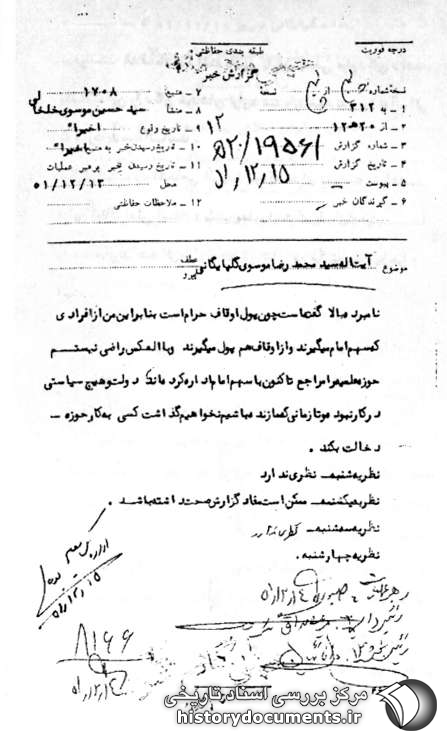 درجه فوریت
طبقه بندی حفاظتی
گزارش خبر
نسخه شماره از نسخه
۱ - به ۳۱۲
۲ - از ۱۲ه۲۰
۳ - شماره گزارش ۱۹۵۶۱/۲۰ه۱۲
۴ - تاریخ گزارش ۵۱/۱۲/۱۵
۵ - پیوست
۶ - گیرندگان خبر
۷ - منبع ۱۷۰۸
۸ - منشا سید حسین موسوی خلخالی
۹ - تاریخ وقوع اخیرا"
۱۰ - تاریخ رسیدن خبر به منبع اخیرا"
۱۱ - تاریخ رسیدن خبر برهبر عملیات محل ۵۱/۱۲/۱۳
۱۲ - ملاحظات حفاظتی
موضوع آیت اله سید محمد رضا موسوی گلپایگانی عطف پیرو
نامبرده بالا گفته است چون پول اوقاف حرام است بنابراین من از افرادی
که سهم امام میگیرند و از اوقاف هم پول میگیرند و بالعکس راضی نیستم
حوزه علمیه را مراجع تاکنون با سهم امام اداره کرده اند دولت و هیچ سیاستی
در کار نبوده و تا زمانی که ما زنده میباشیم نخواهیم گذاشت کسی به کار حوزه -
دخالت بکند .
نظریه شنبه - نظری ندارد
نظریه یکشنبه - ممکن است مفاد گزارش صحت داشته باشد .
نظریه سه شنبه - نظری ندارد
نظریه چهارشنبه .
۵۱/۱۲/۱۵
رهبر عملیات ۵۱/۱۲/۱۴
۸۱۶۶
مرکز بررسی اسناد تاریخی
historydocuments.ir